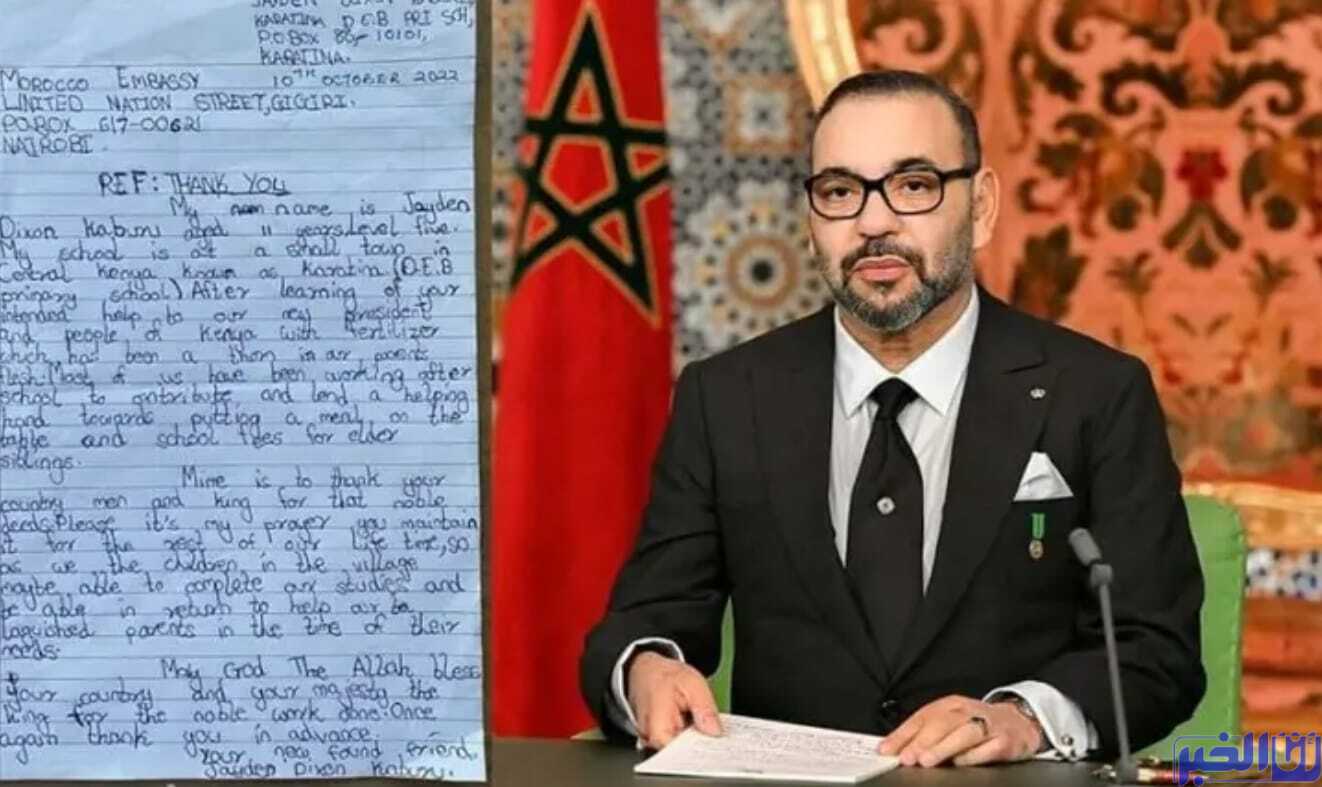 KARATINA D.E.B. PRI SCH,
P.O. BOX 80 - 10101,
KARATINA.
MOROCCO EMBASSY 10TH OCTOBER 2022
UNITED NATION STREET, GIGIRI.
P.O. BOX 617-00621
NAIROBI.
REF: THANK YOU
My name is Jayden
Dixon Kaburu aged 11 years, Level five.
My school is at a small town in
Central Kenya known as Karatina (D.E.B
primary school) After learning of your
intended help to our new president
and people of Kenya with fertilizer
which has been a thorn in our parents
flesh. Most of us have been working after
school to contribute and lend a helping
hand towards putting a meal on the
table and school fees for elder
siblings.
Mine is to thank your
country men and king for that noble
deeds. Please it's my prayer you maintain
it for the rest of our life time, so
as we the children in the village
maybe able to complete our studies and
be able in return to help our
parents in the time of their
needs.
May God The Allah bless
your country and your majesty the
king for the noble work done. Once
again thank you in advance.
Your new found friend,
Jayden Dixon Kaburu.
الخبر